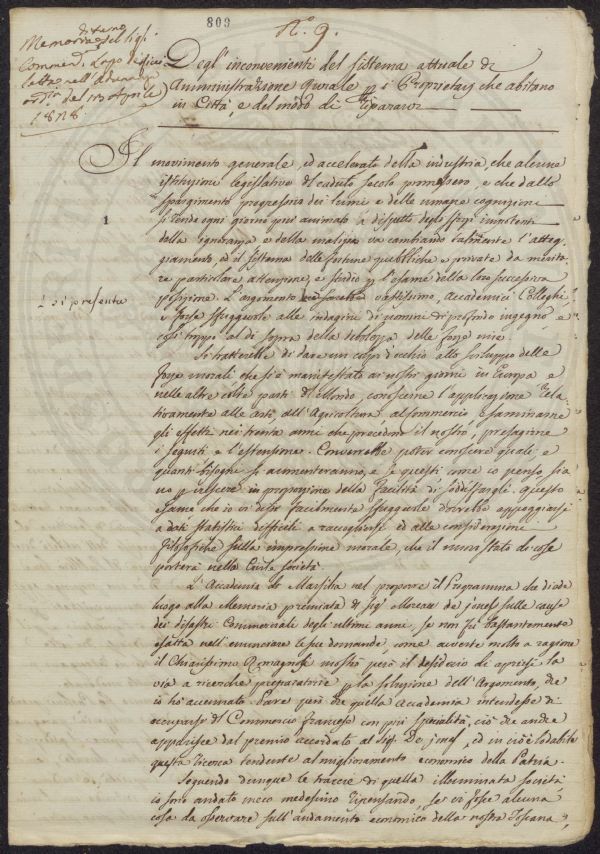 803
N.° 9.
di turno
Memoria del Sig.r
Commend. Lapo de Ricci
letta nell'Adunanza
ord.ria del 13 Aprile
1828.
Degl'inconvenienti del sistema attuale di
Amministrazione rurale p i Proprietarj che abitano
in Città, e del modo di ripararvi
1
Il movimento generale, ed accelerato della industria, che alcune
istituzioni legislative del caduto secolo promossero, e che dallo
spargimento progressivo dei lumi e delle umane cognizioni
si rende ogni giorno più animato a dispetto degli sforzi impotenti
della ignoranza e della malizia va cambiando talmente l'atteg-
giamento, ed il sistema delle fortune pubbliche e private da merita-
re particolare attenzione, e studio p l'esame della loro successiva
posizione. L'argomento vastissimo, Accademici Colleghi
si presenta
e forse sfuggevole alle indagini di uomini di profondo ingegno è
così troppo al di sopra della debolezza delle forze mie.
Si tratterebbe di dare un colpo d'occhio allo sviluppo delle
forze morali che si è manifestato ai nostri giorni in Europa e
nelle altre colte parti del Mondo, conoscerne l'applicazione rela-
tivamente alle Arti all'Agricoltura al Commercio esaminarne
gli effetti nei trenta anni che precedono il nostro, presagirne
i seguiti e l'estensione. Converrebbe poter conoscere quali e
quanti bisogni si aumenteranno, e se questi come io penso sia
no p crescere in proporzione della facoltà di sodisfargli. Questo
esame che io vi dissi facilmente sfuggevole dovrebbe appoggiarsi
a dati statistici difficili a raccogliersi ed alle considerazioni
filosofiche sulla impressione morale, che il nuovo stato di cose
porterà nella Civile società.
L'Accademia di Marsilia nel proporre il Programma che diede
luogo alla Memoria premiata del Sig.r Moreau de Jonnes sulle cause
dei disastri Commerciali degli ultimi anni, se non fu bastantemente
esatta nell'enunciare le sue domande, come avverte molto a ragione
il Chiarissimo Romagnosi mostrò però il desiderio di aprirsi la
via a ricerche preparatorie p la soluzione dell'Argomento, che
io ho accennato. Pare però che quella Accademia intendesse di
occuparsi del Commercio francese con più specialità, ciò che anche
apparisce dal premio accordato al Sig. De Jonnes, ed in ciò è lodabile
questa ricerca tendente al miglioramento economico della Patria.
Seguendo dunque le tracce di quella illuminata società
io sono andato meco medesimo ripensando, se vi fosse alcuna
cosa da osservare sull'andamento economico della nostra Toscana,